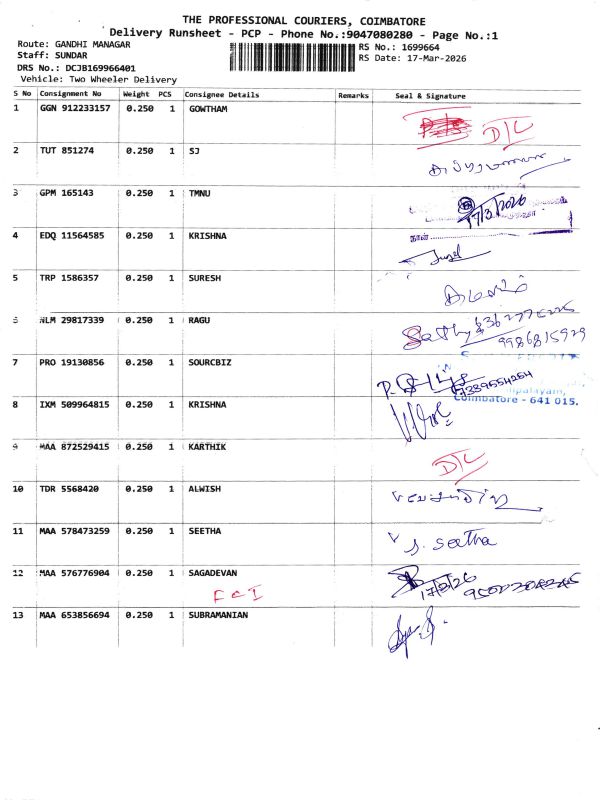 THE PROFESSIONAL COURIERS, COIMBATORE
Delivery Runsheet - PCP - Phone No.:9047080280 - Page No.:1
Route: GANDHI MANAGAR
RS No.: 1699664
Staff: SUNDAR
RS Date: 17-Mar-2026
DRS No.: DCJB169966401
Vehicle: Two Wheeler Delivery
S No Consignment No Weight PCS Consignee Details Remarks Seal & Signature
1 GGN 912233157 0.250 1 GOWTHAM D/L
2 TUT 851274 0.250 1 SJ
3 GPM 165143 0.250 1 TMNU 17/3/2026
4 EDQ 11564585 0.250 1 KRISHNA
5 TRP 1586357 0.250 1 SURESH
6 NLM 29817339 0.250 1 RAGU
9986815929
7 PRO 19130856 0.250 1 SOURCBIZ
Coimbatore - 641 015.
8 IXM 509964815 0.250 1 KRISHNA
9 MAA 872529415 0.250 1 KARTHIK D/L
10 TDR 5568420 0.250 1 ALWISH
11 MAA 578473259 0.250 1 SEETHA S. Seetha
12 MAA 576776904 0.250 1 SAGADEVAN
13 MAA 653856694 0.250 1 SUBRAMANIAN